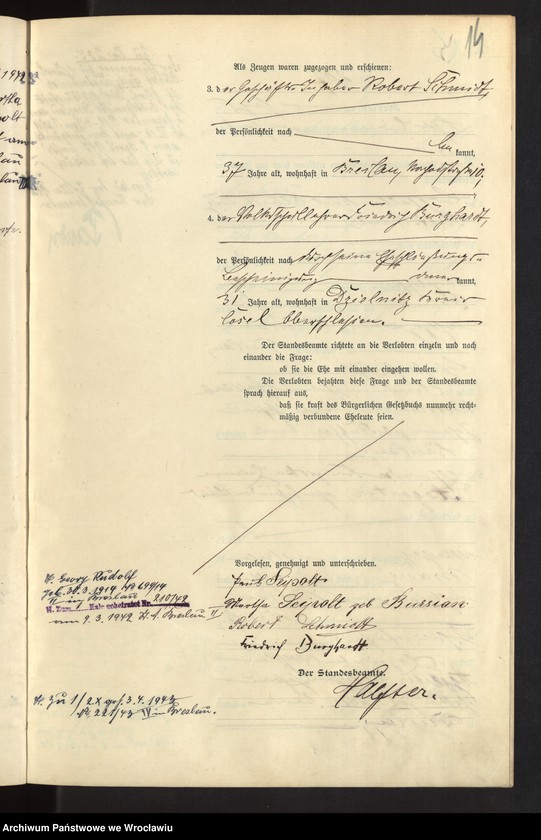 14
Als Zeugen waren zugezogen und erschienen:
3. der Geschäfts Inhaber Robert Schmidt,
der Persönlichkeit nach
kannt,
37 Jahre alt, wohnhaft in Breslau,
4. der Volksschullehrer Friedrich Burghardt,
der Persönlichkeit nach durch seine
Bescheinigung kannt,
31 Jahre alt, wohnhaft in Dzielnitz Kreis
Cosel Oberschlesien.
Der Standesbeamte richtete an die Verlobten einzeln und nach
einander die Frage:
ob sie die Ehe mit einander eingehen wollen.
Die Verlobten bejahten diese Frage und der Standesbeamte
sprach hierauf aus,
daß sie kraft des Bürgerlichen Gesetzbuchs nunmehr recht-
mäßig verbundene Eheleute seien.
Vorgelesen, genehmigt und unterschrieben.
Seipolt
Martha Seipolt geb Bussian
Robert Schmidt
Friedrich Burghardt
Der Standesbeamte.
Georg Rudolf
geb. 30.3.1914 No 699/14
II in Breslau
210/42
am 9.3.1942 Breslau II
Zu 1/2 X gesch. 3.4.1943
No 221/43 IV in Breslau.
Archiwum Państwowe we Wrocławiu